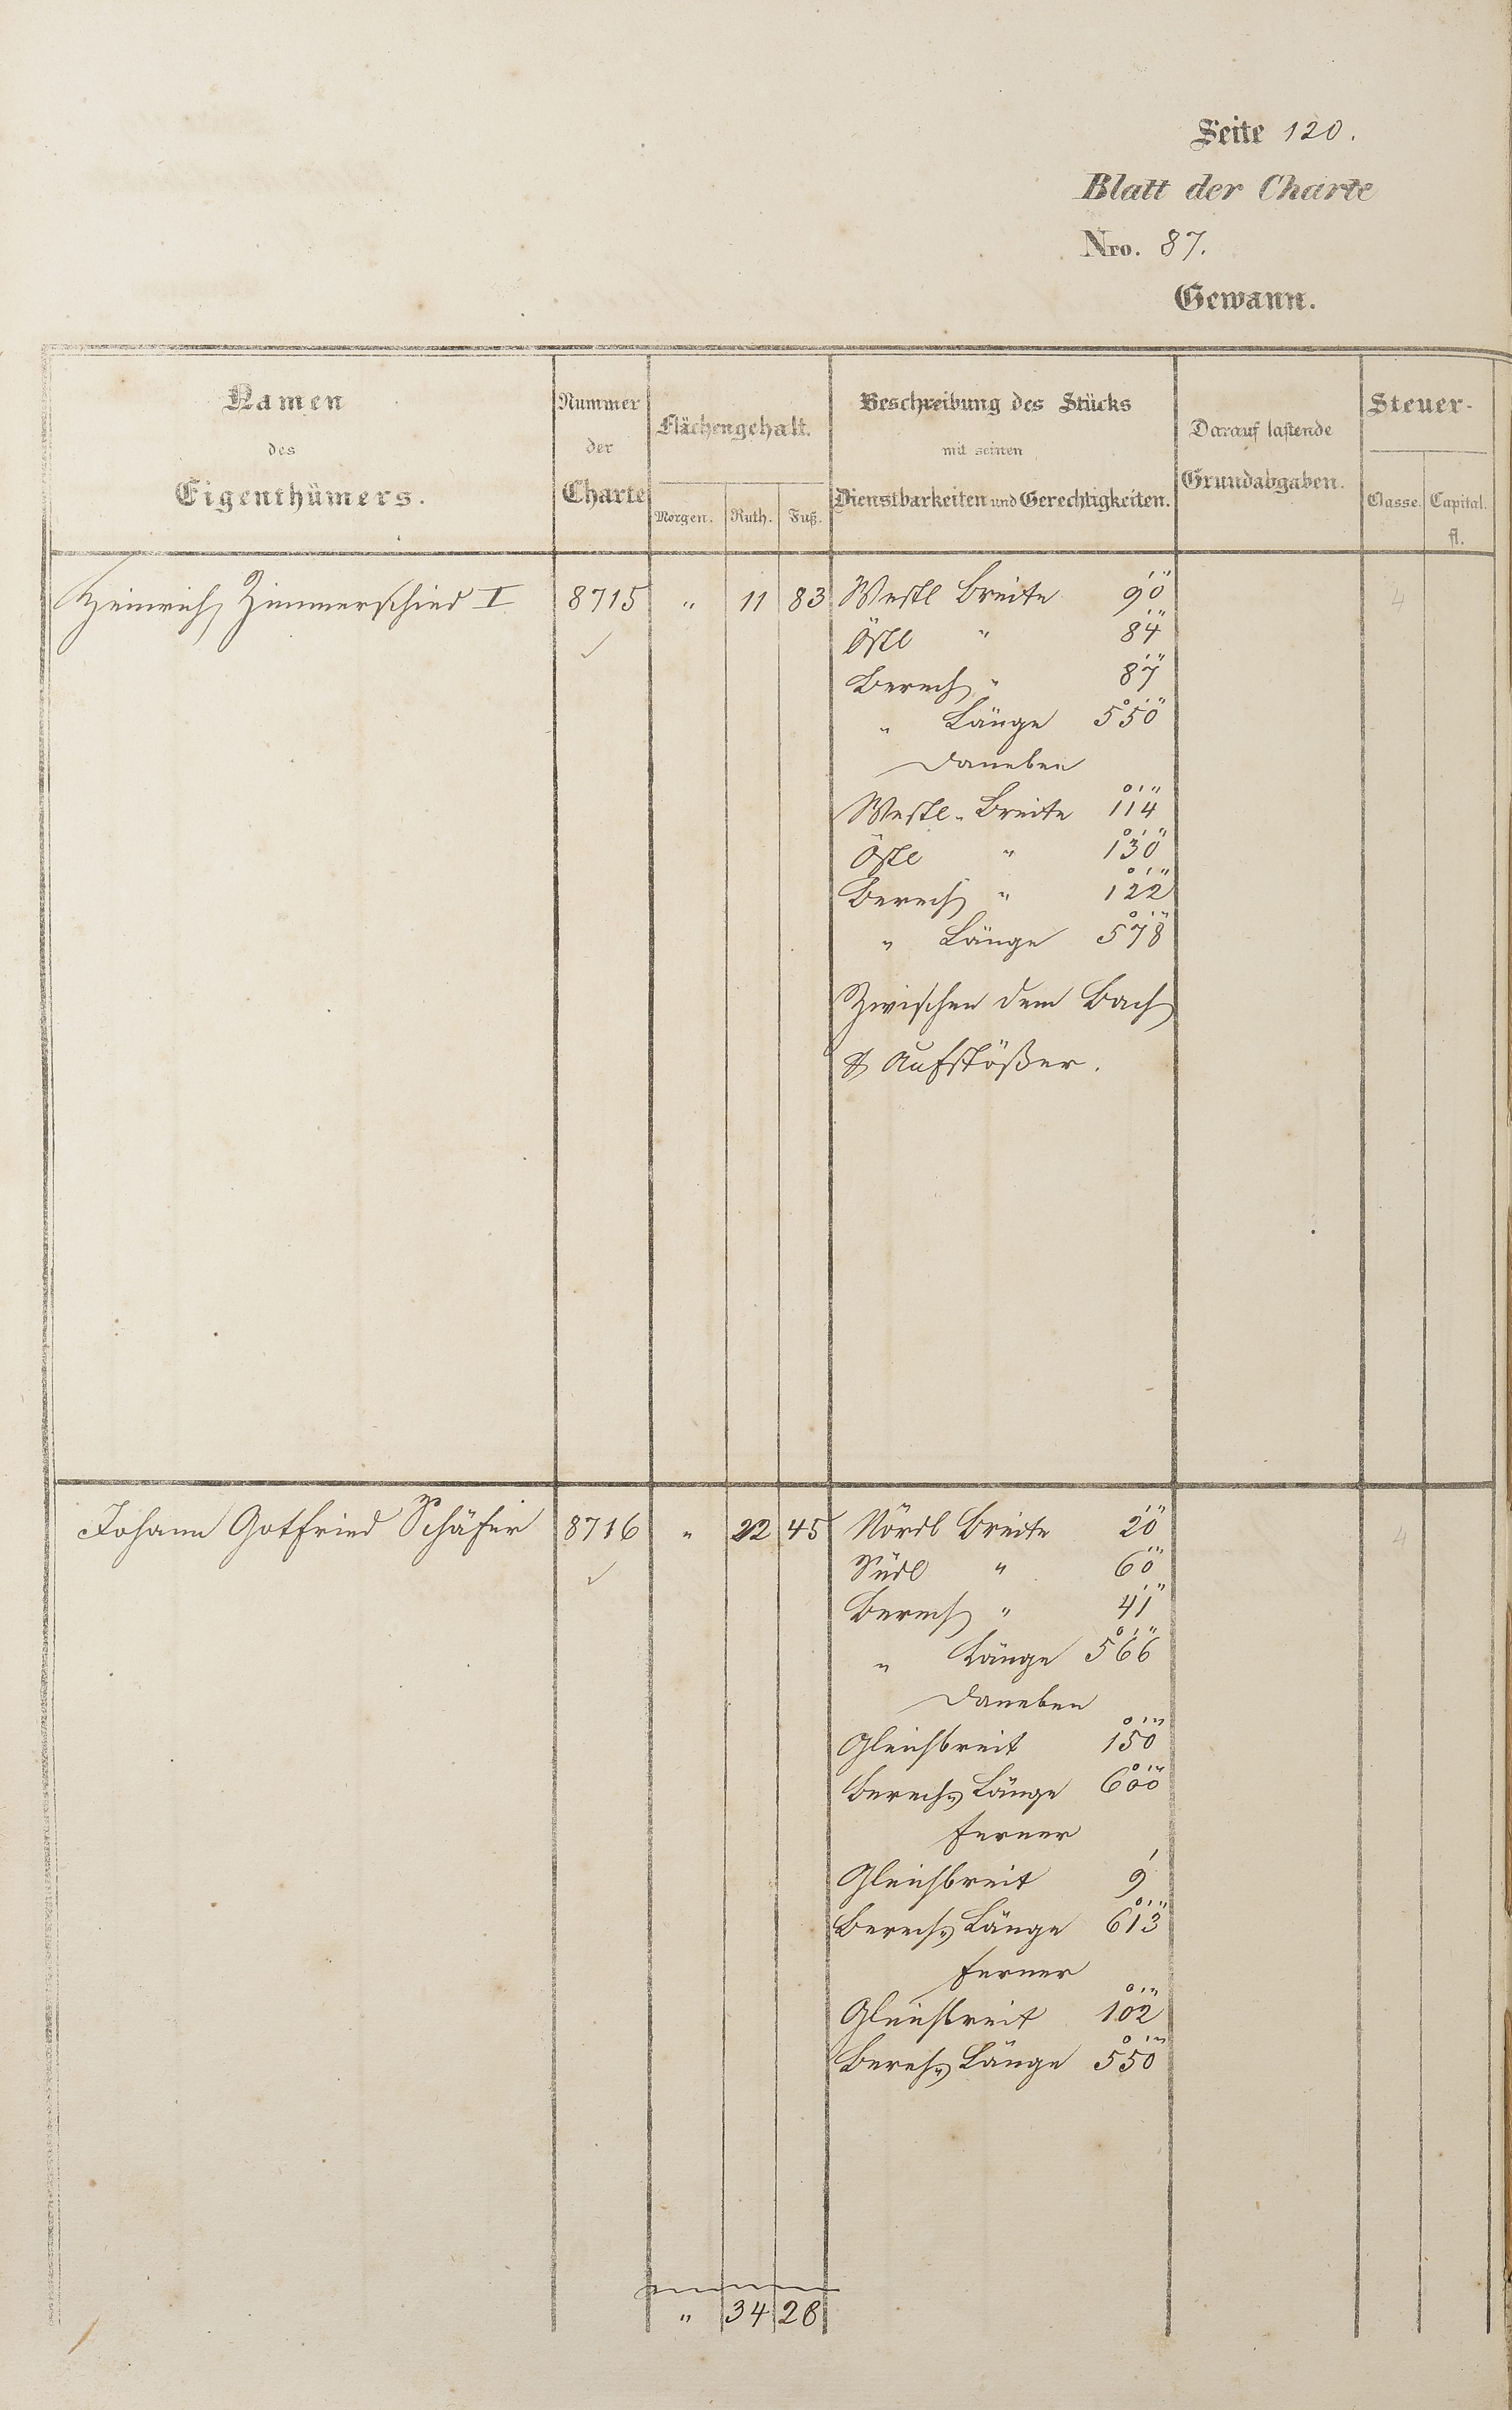 Seite 120.
Blatt der Charte
Nro. 87.
Gewann.
Namen
des
Eigenthümers.
Nummer
der
Charte
Flächengehalt.
Morgen. Ruth. Fuß.
Beschreibung des Stücks
mit seinen
Dienstbarkeiten und Gerechtigkeiten.
Darauf lastende
Grundabgaben.
Steuer-
Classe. Capital.
fl.
Heinrich Zimmerschied I 8715 " 11 83 Westl Breite 9'0" 4
Östl " 8'4"
Berech " 8'7"
" Länge 5°5'0"
Daneben
Westl. Breite 1°1'4"
Östl " 1°3'0"
Berech " 1°2'2"
" Länge 5°7'8"
Zwischen dem Bach
& Aufstößer.
Johann Gotfried Schäfer 8716 " 22 45 Nördl Breite 2'0" 4
Südl " 6'0"
Berech " 4'1"
" Länge 5°6'6"
Daneben
Gleichbreit 1°5'0"
Berech Länge 6°0'0"
ferner
Gleichbreit 9'
Berech Länge 6°1'3"
ferner
Gleichbreit 1°0'2"
Berech Länge 5°5'0"
" 34 28